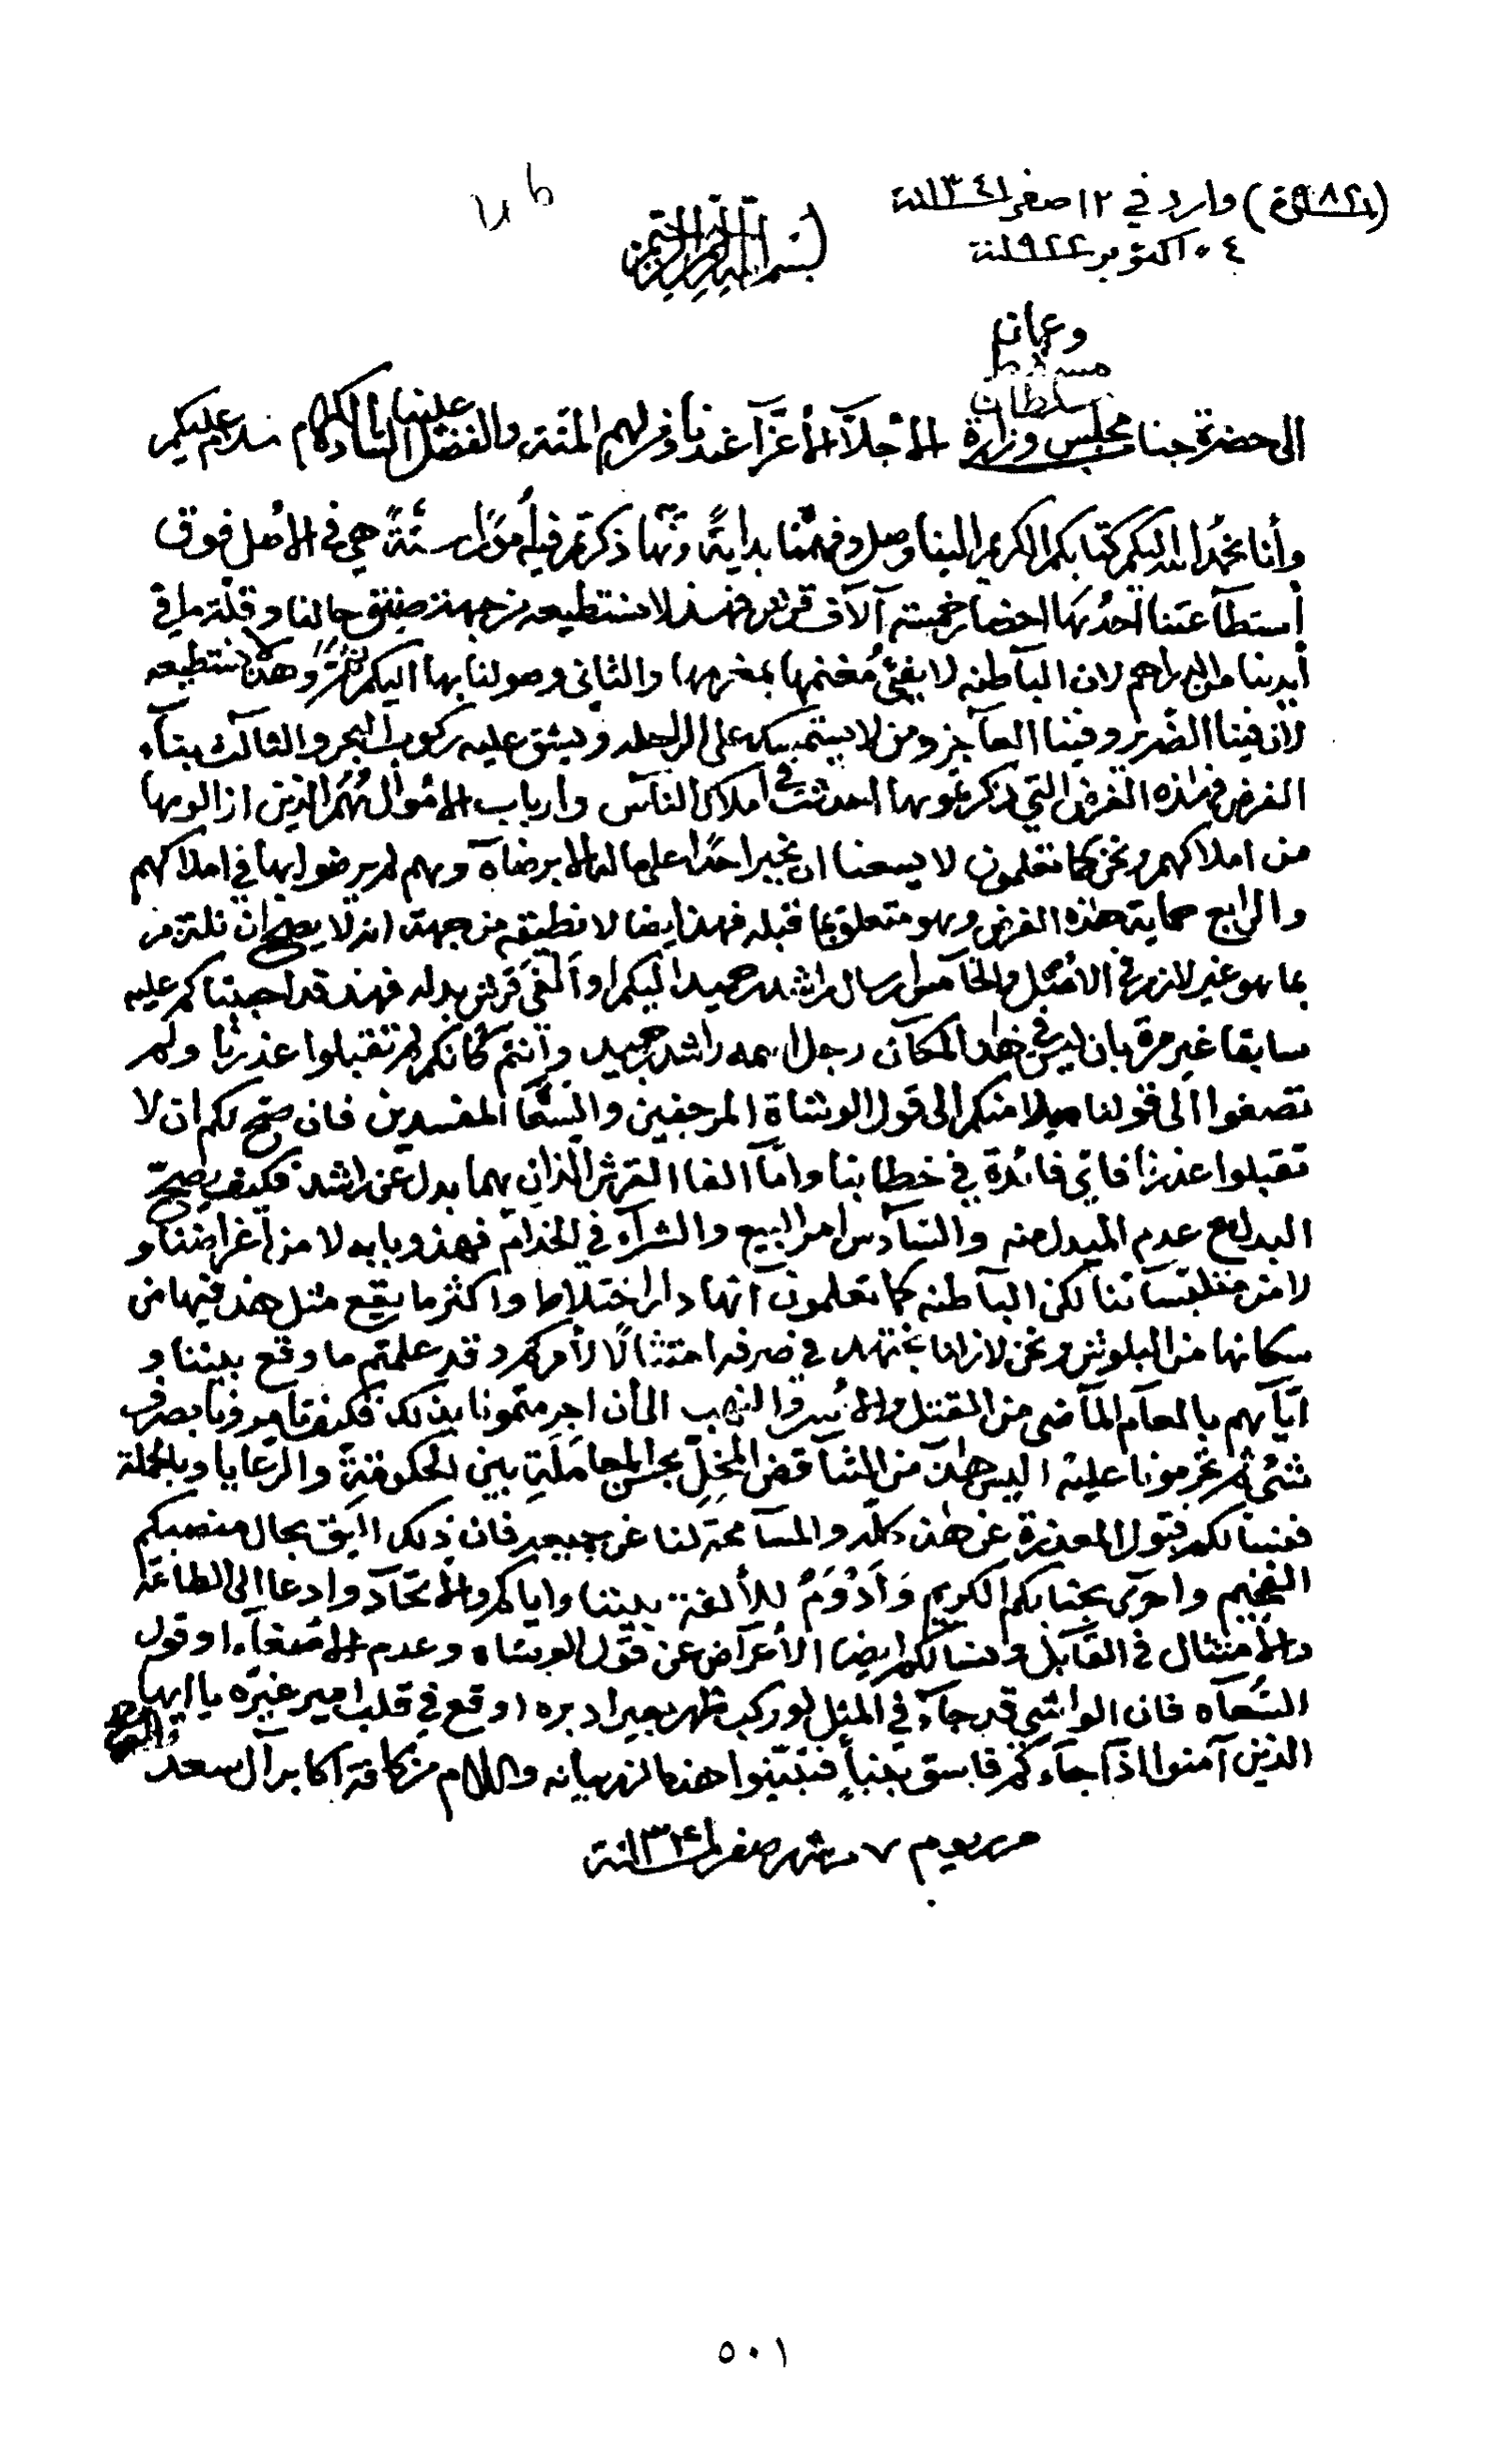 (٩٨٢) وارد في ١٢ صفر سنة ١٣٤١
٠٤ اكتوبر سنة ١٩٢٢
بسم الله الرحمن الرحيم
وعمان
مسقط
سلطان
الى حضرة جناب مجلس وزارة الأجلاء الأعزآء عندنا ومن لهم المنة والفضل علينا السادة الكرام سلام عليكم
وأنا نحمد الله اليكم كتابكم الكريم الينا وصل وفهمنا بداية وما ذكرتم فيه أمورا ستة هي في الأصل فوق
أستطآعتنا أحدها احضار خمسة آلآف قرش فهذا لا نستطيعه من جهة ضيق حالنا وقلة ما في
أيدينا من الدراهم لان البآطنه لا يفي مغنمها بمغرمها والثاني وصولنا بها اليكم وهذا لا نستطيعه
لان فينا الضرير وفينا العآجز ومن لا يستمسك على الراحله ويشق عليه ركوب البحر والثالث بنآء
الفرض فهذه الفرض التي ذكرتموها احدثت في أملاك النآس وارباب الأموال هم الذين ازالوها
من املاكهم ونحن كما تعلمون لا يسعنا ان نجبر احدا على ماله الا برضاه وهم لم يرضوا بها في املاكهم
والرابع حماية هذه الفرض وهو متعلق بما قبله فهذا ايضا لا نطيقه من جهة انه لا يصح ان نلتزم
بما هو غير لازم في الأصل والخآمس ارسال راشد بن حميد اليكم او ألفي قرش بدله فهذا قد اجبناكم عليه
سابقا غير مرة بان ليس في هذا المكان رجل اسمه راشد بن حميد وأنتم كأنكم لم تقبلوا عذرنا ولم
تصغوا الى قولنا ميلا منكم الى قول الوشاة المرجفين والسعاة المفسدين فان صح لكم ان لا
تقبلوا عذرنا فاي فائدة في خطابنا وامآ الفا القرش اللذان هما بدل عن راشد فكيف يصح
البدل مع عدم المبدل منه والسآدس امر البيع والشرآء في الخدام فهذا وبابه لا من أغراضنا و
لا من لكن البآطنه كما تعلمون أنها دار اختلاط واكثر ما يقع مثل هذا فيها من
سكانها من البلوش ونحن لا زلنا نجتهد في صرفه امتثالًا لأمركم وقد علمتم ما وقع بيننا و
ايآهم بالعآم المآضي من القتل والأسر والنهب الى أن اجرمتمونا بذلك فكيف تأمرونا بصرف
شئ ثم تجرمونا عليه اليس هذا من التنآقض المخل بحسن المعاملة بين الحكومة والرعايا وبالجملة
فنسألكم قبول المعذرة عن هذا كله والمسآمحة لنا عن جميعه فان ذلك اليق بحال منصبكم
الفخيم واحرى بجنابكم الكريم وأدوم للألفة بيننا واياكم والأتحآد وادعا الى الطاعة
والأمتثال في القآبل ونسألكم ايضا الأعرآض عن قول الوشاه وعدم الأصغآء لقول
السعآه فان الواشي قد جآء في المثل لو ركب ظهر بعير ادبره اوقع في قلب امير غيره يا ايها
الذين آمنوا اذآ جآءكم فاسق بنبأ فتبينوا هذا ما لزم بيانه والسلام من كافة اكابر آل سعد
من يوم ٧ من شهر صفر سنة ١٣٤١
٥٠١